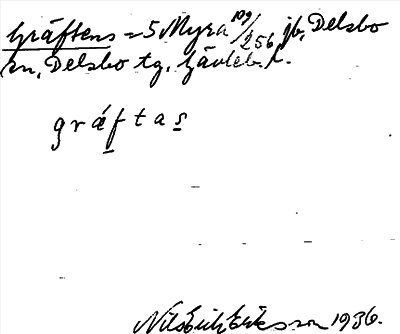 Gräftens = 5 Myra 109/256 jb, Delsbo
sn, Delsbo tg. Gävleb. l.
gräftas
Nils Erik Eriksson 1936.